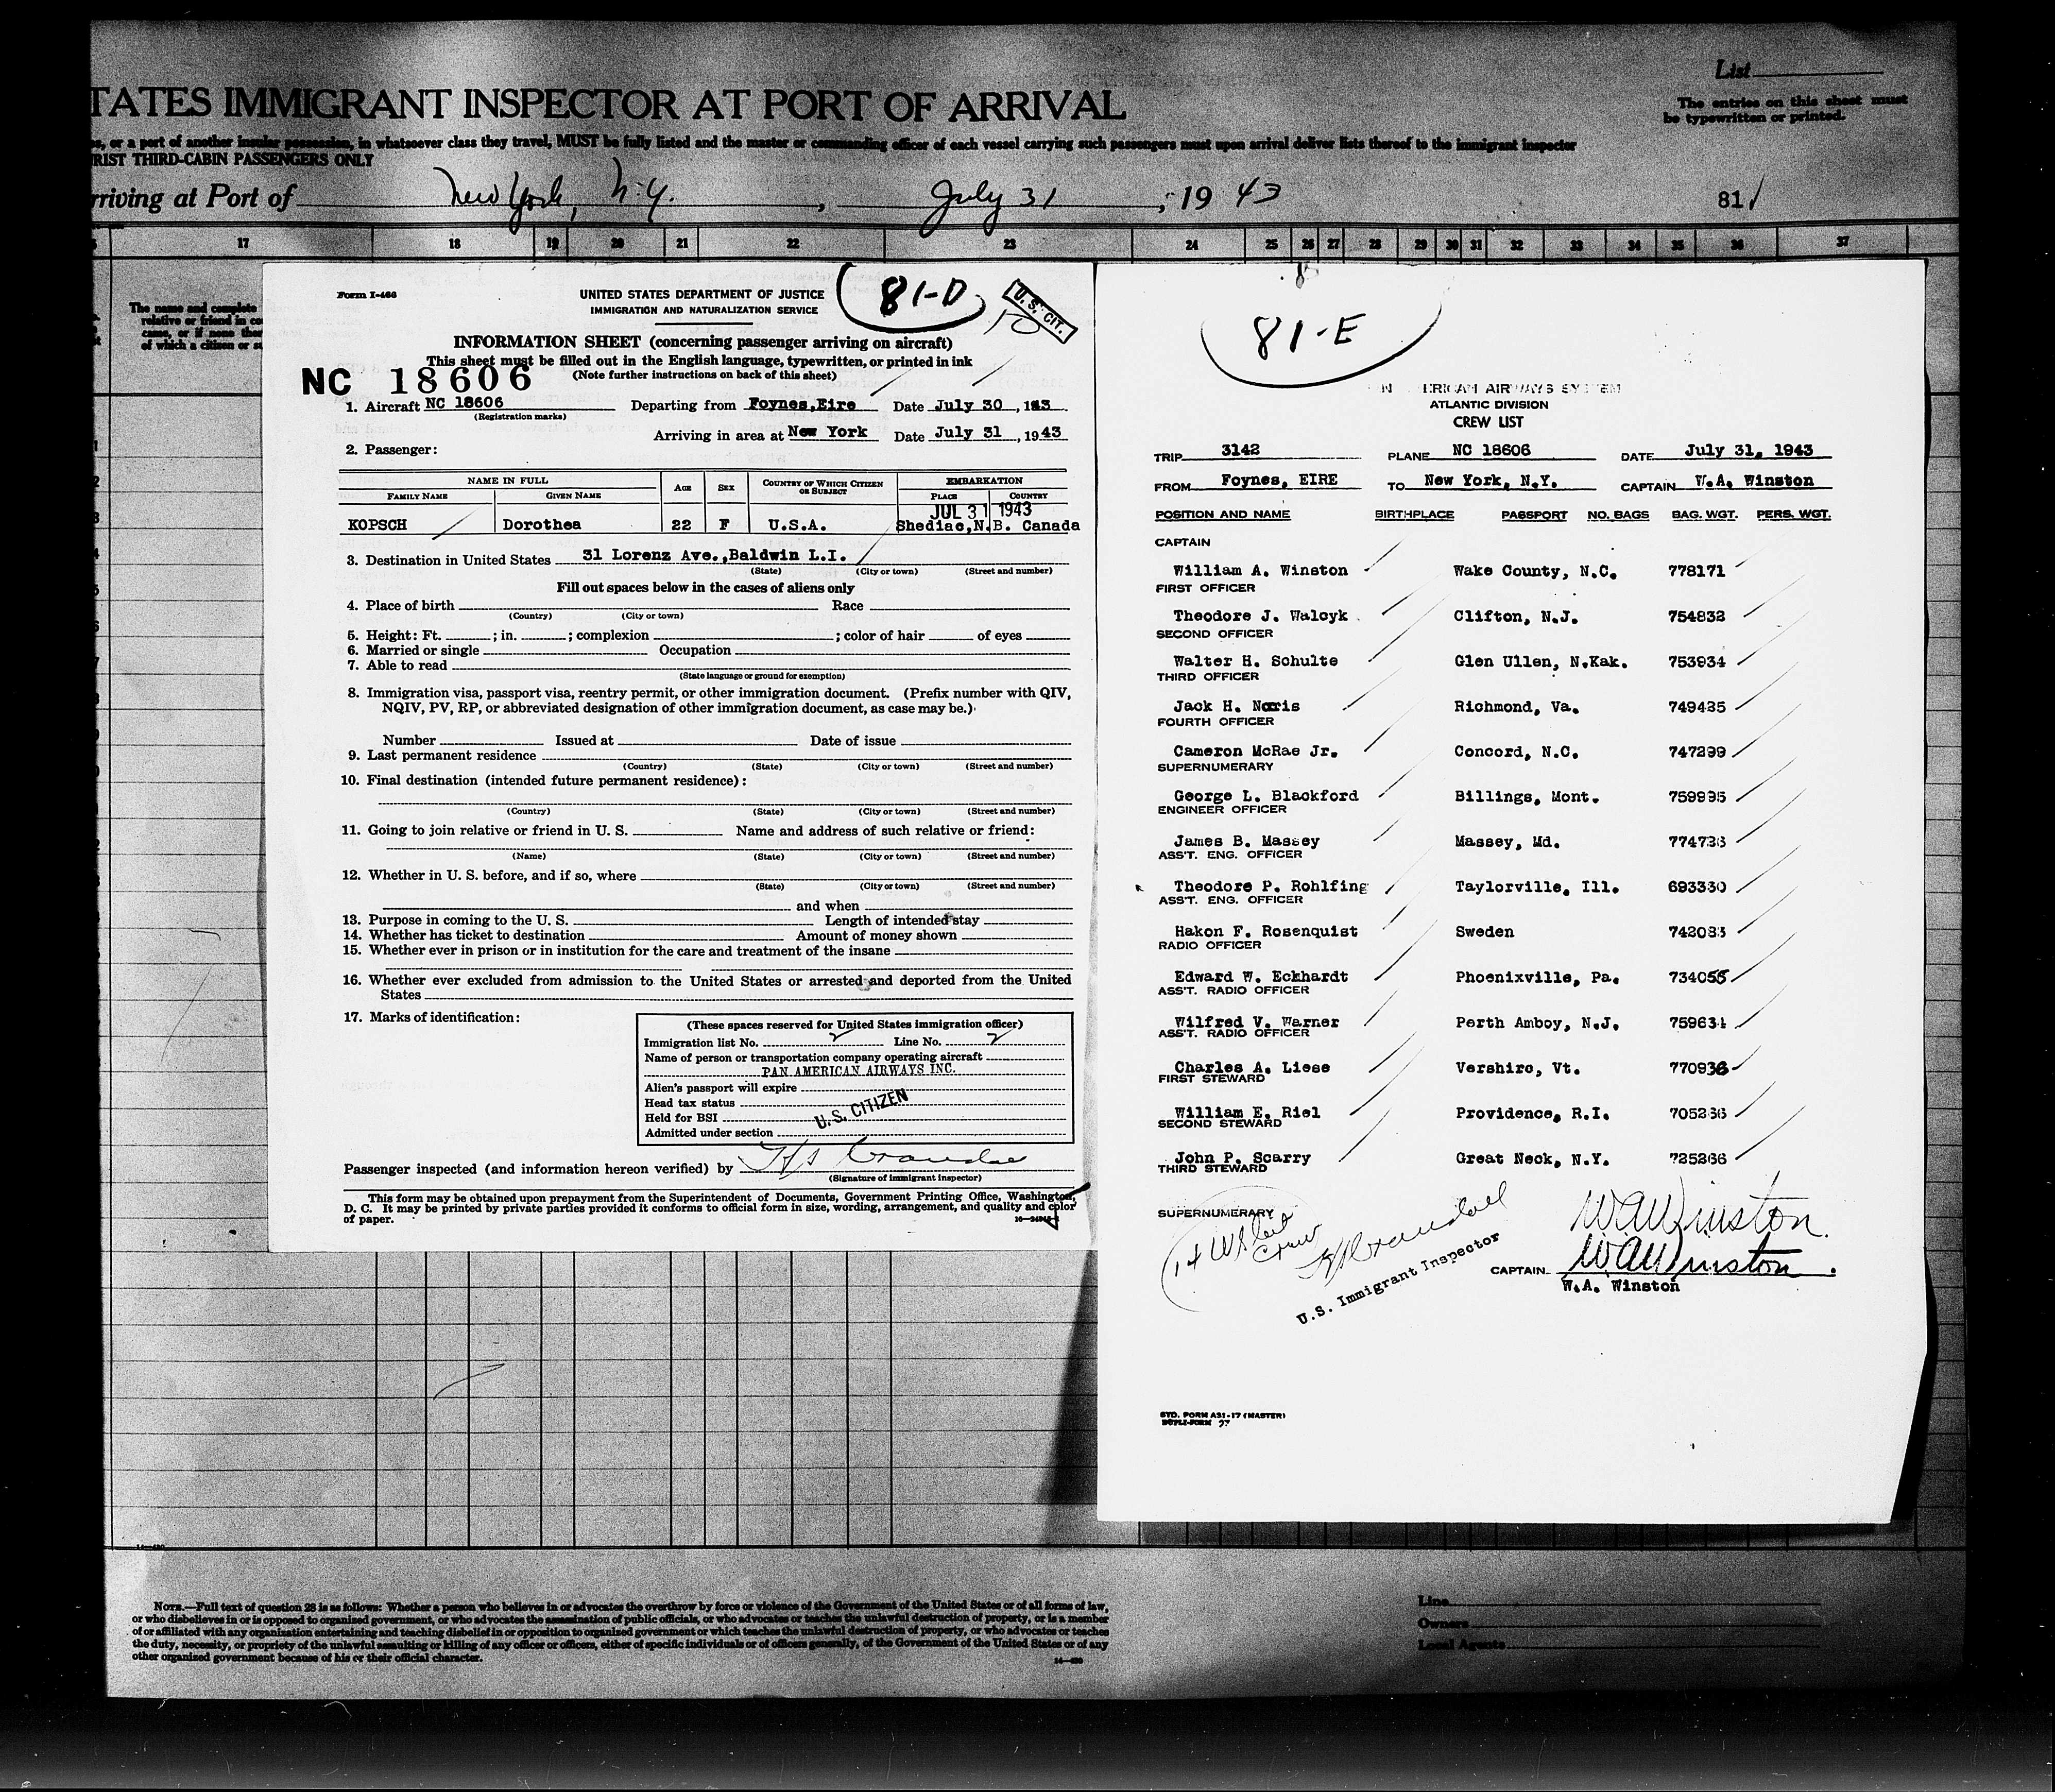 List
TATES IMMIGRANT INSPECTOR AT PORT OF ARRIVAL
The entries on this sheet must
be typewritten or printed.
s, or a part of another insular possession, in whatsoever class they travel, MUST be fully listed and the master or commanding officer of each vessel carrying such passengers must upon arrival deliver lists thereof to the immigrant inspector
RIST THIRD-CABIN PASSENGERS ONLY
rriving at Port of New York, N.Y., July 31, 1943
81
17 18 19 20 21 22 23 24 25 26 27 28 29 30 31 32 33 34 35 36 37
The name and complete
relative or friend in co
came, or if none ther
of which a citizen or su
Form I-466
UNITED STATES DEPARTMENT OF JUSTICE
IMMIGRATION AND NATURALIZATION SERVICE
81-D
U.S. CIT.
INFORMATION SHEET (concerning passenger arriving on aircraft)
This sheet must be filled out in the English language, typewritten, or printed in ink
(Note further instructions on back of this sheet)
NC 18606
1. Aircraft NC 18606 Departing from Foynes,Eire Date July 30, 1943.
(Registration marks)
Arriving in area at New York Date July 31, 1943
2. Passenger:
NAME IN FULL AGE SEX COUNTRY OF WHICH CITIZEN OR SUBJECT EMBARKATION
FAMILY NAME GIVEN NAME PLACE COUNTRY
JUL 31 1943
KOPSCH Dorothea 22 F U.S.A. Shediac,N.B. Canada
3. Destination in United States 31 Lorenz Ave.,Baldwin L.I.
(State) (City or town) (Street and number)
Fill out spaces below in the cases of aliens only
4. Place of birth Race
(Country) (City or town)
5. Height: Ft. ; in. ; complexion ; color of hair of eyes
6. Married or single Occupation
7. Able to read
(State language or ground for exemption)
8. Immigration visa, passport visa, reentry permit, or other immigration document. (Prefix number with QIV,
NQIV, PV, RP, or abbreviated designation of other immigration document, as case may be.)
Number Issued at Date of issue
9. Last permanent residence
(Country) (State) (City or town) (Street and number)
10. Final destination (intended future permanent residence):
(Country) (State) (City or town) (Street and number)
11. Going to join relative or friend in U. S. Name and address of such relative or friend:
(Name) (State) (City or town) (Street and number)
12. Whether in U. S. before, and if so, where
(State) (City or town) (Street and number)
and when
13. Purpose in coming to the U. S. Length of intended stay
14. Whether has ticket to destination Amount of money shown
15. Whether ever in prison or in institution for the care and treatment of the insane
16. Whether ever excluded from admission to the United States or arrested and deported from the United
States
17. Marks of identification:
(These spaces reserved for United States immigration officer)
Immigration list No. 2 Line No. 2
Name of person or transportation company operating aircraft
PAN AMERICAN AIRWAYS INC.
Alien's passport will expire
Head tax status
Held for BSI U.S. CITIZEN
Admitted under section
Passenger inspected (and information hereon verified) by
(Signature of immigrant inspector)
This form may be obtained upon prepayment from the Superintendent of Documents, Government Printing Office, Washington,
D. C. It may be printed by private parties provided it conforms to official form in size, wording, arrangement, and quality and color
of paper.
81-E
N ERICAN AIRWAYS SYSTEM
ATLANTIC DIVISION
CREW LIST
TRIP 3142 PLANE NC 18606 DATE July 31, 1943
FROM Foynes, EIRE TO New York, N.Y. CAPTAIN W.A. Winston
POSITION AND NAME BIRTHPLACE PASSPORT NO. BAGS BAG. WGT. PERS. WGT.
CAPTAIN
William A. Winston Wake County, N.C. 778171
FIRST OFFICER
Theodore J. Walcyk Clifton, N.J. 754832
SECOND OFFICER
Walter H. Schulte Glen Ullen, N.Kak. 753934
THIRD OFFICER
Jack H. Noris Richmond, Va. 749435
FOURTH OFFICER
Cameron McRae Jr. Concord, N.C. 747299
SUPERNUMERARY
George L. Blackford Billings, Mont. 759995
ENGINEER OFFICER
James B. Massey Massey, Md. 774736
ASS'T. ENG. OFFICER
Theodore P. Rohlfing Taylorville, Ill. 693330
ASS'T. ENG. OFFICER
Hakon F. Rosenquist Sweden 742083
RADIO OFFICER
Edward W. Eckhardt Phoenixville, Pa. 734055
ASS'T. RADIO OFFICER
Wilfred V. Warner Perth Amboy, N.J. 759631
ASS'T. RADIO OFFICER
Charles A. Liese Vershire, Vt. 770936
FIRST STEWARD
William E. Riel Providence, R.I. 705266
SECOND STEWARD
John P. Scarry Great Neck, N.Y. 725266
THIRD STEWARD
SUPERNUMERARY
14 US Cit
Crew
U.S. Immigrant Inspector
W.A. Winston
CAPTAIN W.A. Winston
W.A. Winston
STD. FORM A31-17 (MASTER)
DUPLI-FORM
NOTE.—Full text of question 28 is as follows: Whether a person who believes in or advocates the overthrow by force or violence of the Government of the United States or of all forms of law,
or who disbelieves in or is opposed to organized government, or who advocates the assassination of public officials, or who advocates or teaches the unlawful destruction of property, or is a member
of or affiliated with any organization entertaining and teaching disbelief in or opposition to organized government or which teaches the unlawful destruction of property, or who advocates or teaches
the duty, necessity, or propriety of the unlawful assaulting or killing of any officer or officers, either of specific individuals or of officers generally, of the Government of the United States or of any
other organized government because of his or their official character.
Line
Owners
Local Agents